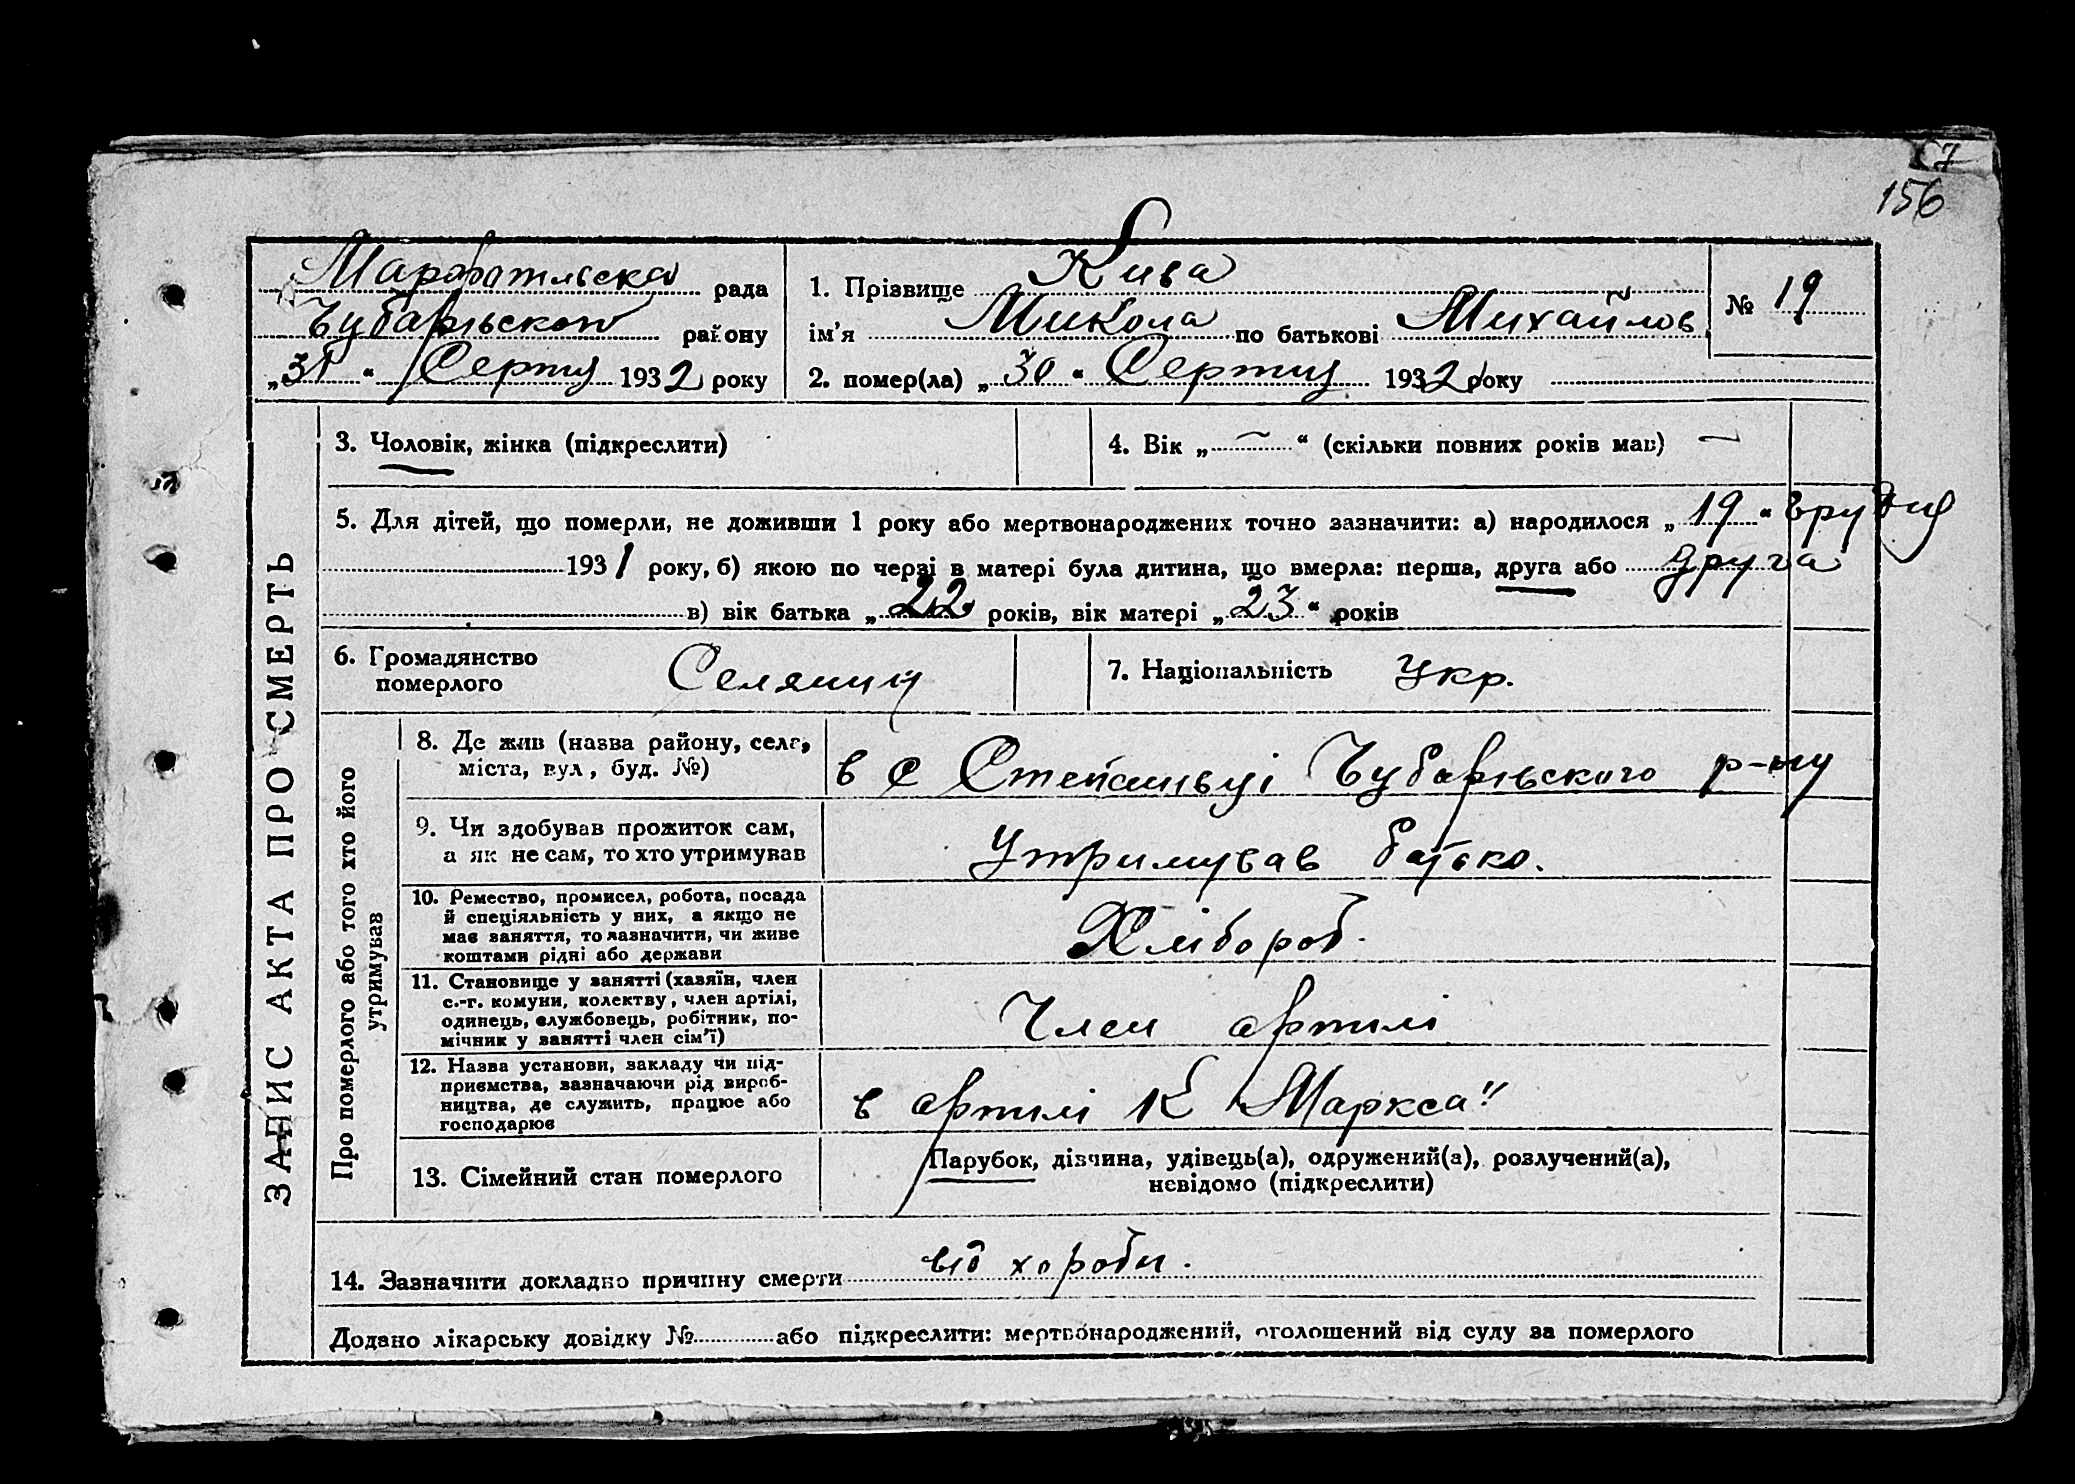 156
рада
Чубарівського району
„31“ Серпня 1932 року
1. Прізвище Кива
ім’я Микола по батькові Михайлов
№ 19
2. помер(ла) „30“ Серпня 1932 року
ЗАПИС АКТА ПРО СМЕРТЬ
3. Чоловік, жінка (підкреслити)
4. Вік „—“ (скільки повних років мав) —
5. Для дітей, що померли, не доживши 1 року або мертвонароджених точно зазначити: а) народилося „19“ Грудня
1931 року, б) якою по черзі в матері була дитина, що вмерла: перша, друга або друга
в) вік батька „22 років, вік матері „23“ років
6. Громадянство
померлого
Селянин
7. Національність Укр.
Про померлого або того хто його
утримував
8. Де жив (назва району, села,
міста, вул, буд. №)
в с Степанівці Чубарівського р-ну
9. Чи здобував прожиток сам,
а як не сам, то хто утримував
Утримував батько.
10. Ремество, промисел, робота, посада
й спеціяльність у них, а якщо не
має заняття, то зазначити, чи живе
коштами рідні або держави
Хлібороб.
11. Становище у занятті (хазяїн, член
с.-г. комуни, колективу, член артілі,
одинець, службовець, робітник, по-
мічник у занятті член сім’ї)
Член артилі
12. Назва установи, закладу чи під-
приємства, зазначаючи рід вироб-
ництва, де служить, працює або
господарює
в артилі К Маркса"
13. Сімейний стан померлого
Парубок, дівчина, удівець(а), одружений(а), розлучений(а),
невідомо (підкреслити)
14. Зазначити докладно причину смерти від хороби.
Додано лікарську довідку № або підкреслити: мертвонароджений, оголошений від суду за померлого